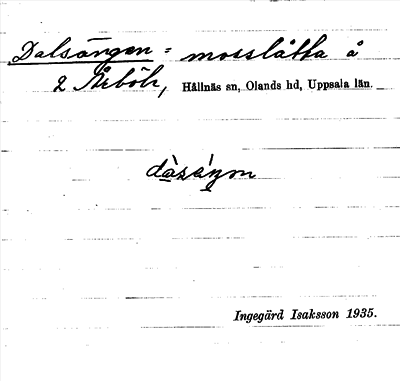 Dalsängen = mosslåtta å
2 Årböle, Hållnäs sn, Olands hd, Uppsala län.
Ingegärd Isaksson 1935.